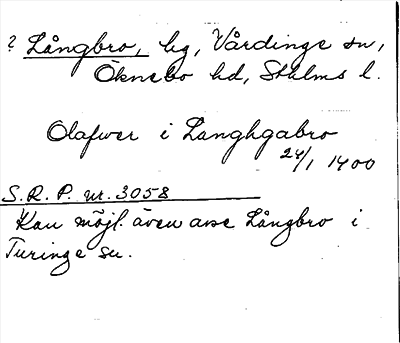 ? Långbro, by, Vårdinge sn,
Öknebo hd, Sthlms l.
Olafwer i Langhgabro
24/1 1400
S.R.P. nr. 3058
Kan möjl. även avse Långbro i
Turinge sn.